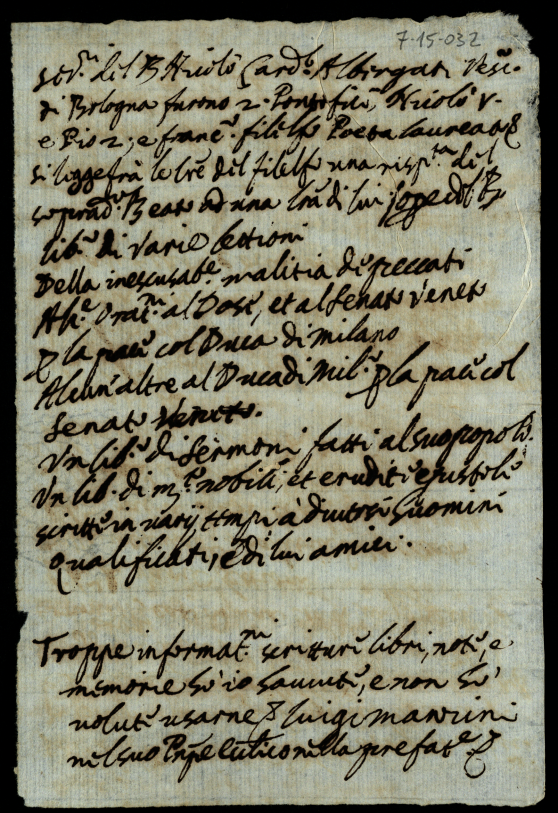 7-15-032
del B Nicolò Card. Albergati Vesc.
di Bologna furono 2. Pontefici, Nicolò V.
e Pio 2; e franc. filelfo Poeta laureato
si legge frà le lre del filelfo una risp.ta del
soprad. Beato ad una lra di lui
lib. di varie lettioni
Della inescusab.e malitia de peccati
al Dose, et al Senato Veneto
p la pace col Duca di Milano
Alcun'altre al Duca di Mil. p la pace col
Senato Veneto.
Un lib. di Sermoni fatti al suo popolo.
Un lib. di m.to nobili, et erudite epistole
scritte in varij tempi à diversi huomini
qualificati, e di lui amici.
Troppe informat.ni scritture libri, note, e
memorie hò io havute, e non hò
volute usarne luigi manzini
nel suo nella prefat.e